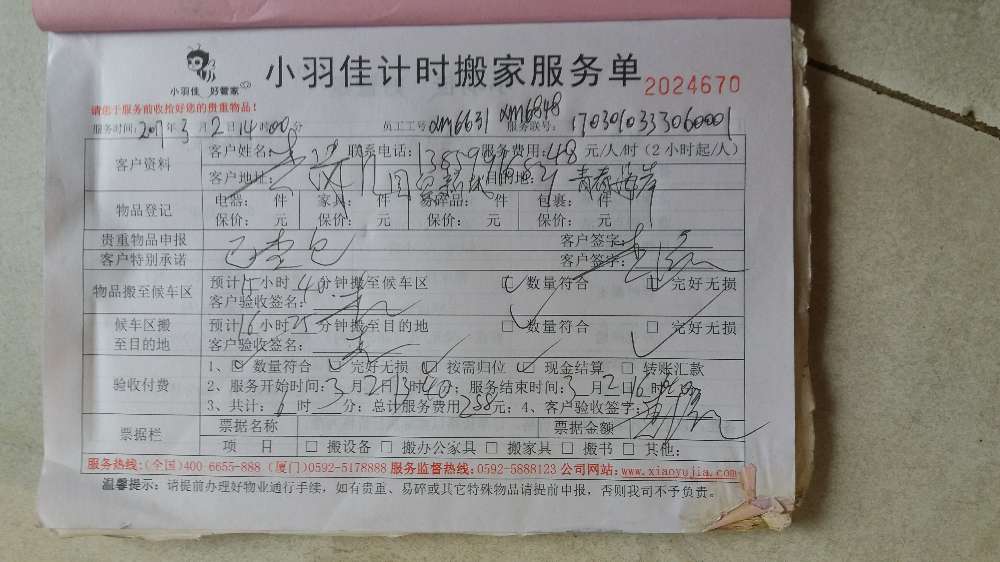 小羽佳 好管家
小羽佳计时搬家服务单 2024670
请您于服务前收拾好您的贵重物品！
服务时间：2017年3月2日14时00分 员工工号：xm6631 xm6848 服务联号：1703010333060001
客户资料 客户姓名： 联系电话： 服务费用：48元/人/时（2小时起/人）
客户地址： 目的地： 青春海岸
物品登记 电器： 件 家具： 件 易碎品： 件 包裹： 件
保价： 元 保价： 元 保价： 元 保价： 元
贵重物品申报 客户签字：
客户特别承诺 客户签字：
物品搬至候车区 预计15小时40分钟搬至候车区 ☑数量符合 ☑完好无损
客户验收签名：
候车区搬至目的地 预计16小时25分钟搬至目的地 □数量符合 □完好无损
客户验收签名：
验收付费 1、☑数量符合 ☑完好无损 ☑按需归位 ☑现金结算 □转账汇款
2、服务开始时间：3月2日13时40；服务结束时间：3月2日16时
3、共计：6时 分；总计服务费用288元；4、客户验收签字：
票据栏 票据名称 票据金额
项 目 □搬设备 □搬办公家具 □搬家具 □搬书 □其他：
服务热线：(全国)400-6655-888 (厦门)0592-5178888 服务监督热线：0592-5888123 公司网站：www.xiaoyujia.com
温馨提示：请提前办理好物业通行手续，如有贵重、易碎或其它特殊物品请提前申报，否则我司不予负责。